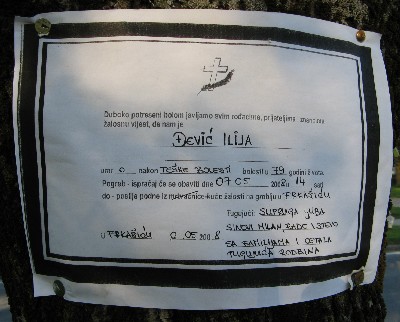 Duboko potreseni bolom javljamo svim rođacima, prijateljima i znancima
žalosnu vijest, da nam je
ĐEVIĆ ILIJA
umr o nakon TEŠKE BOLESTI bolesti u 79 godini života.
Pogreb - ispraćaj će se obaviti dne 07 05 2008 u 14 sati
do - poslije podne iz mrtvačnice-kuće žalosti na groblju u FRKAŠIĆU
Tugujući: SUPRUGA JUBA
SINOVI MILAN, RADE I STEVO
U FRKAŠIĆU 0 05 2008
SA FAMILIJAMA I OSTALA
TUGUJUĆA RODBINA